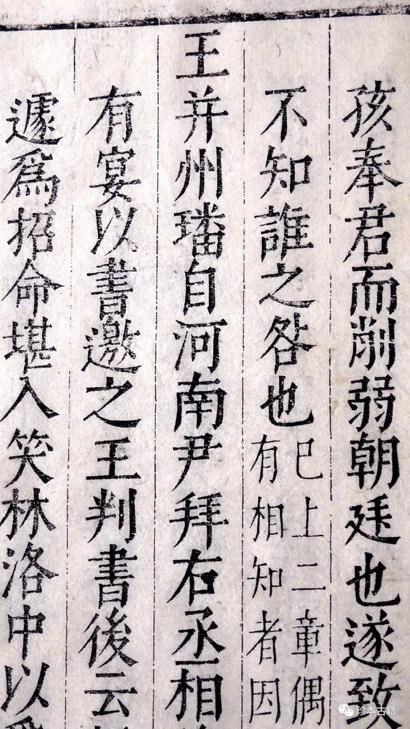 孩奉君而削弱朝廷也遂致
不知誰之咎也
巳上二章偶
有相知者因
王并州璠自河南尹拜右丞相
有宴以書邀之王判書後云
遽爲招命堪入笑林洛中以
珍本古籍